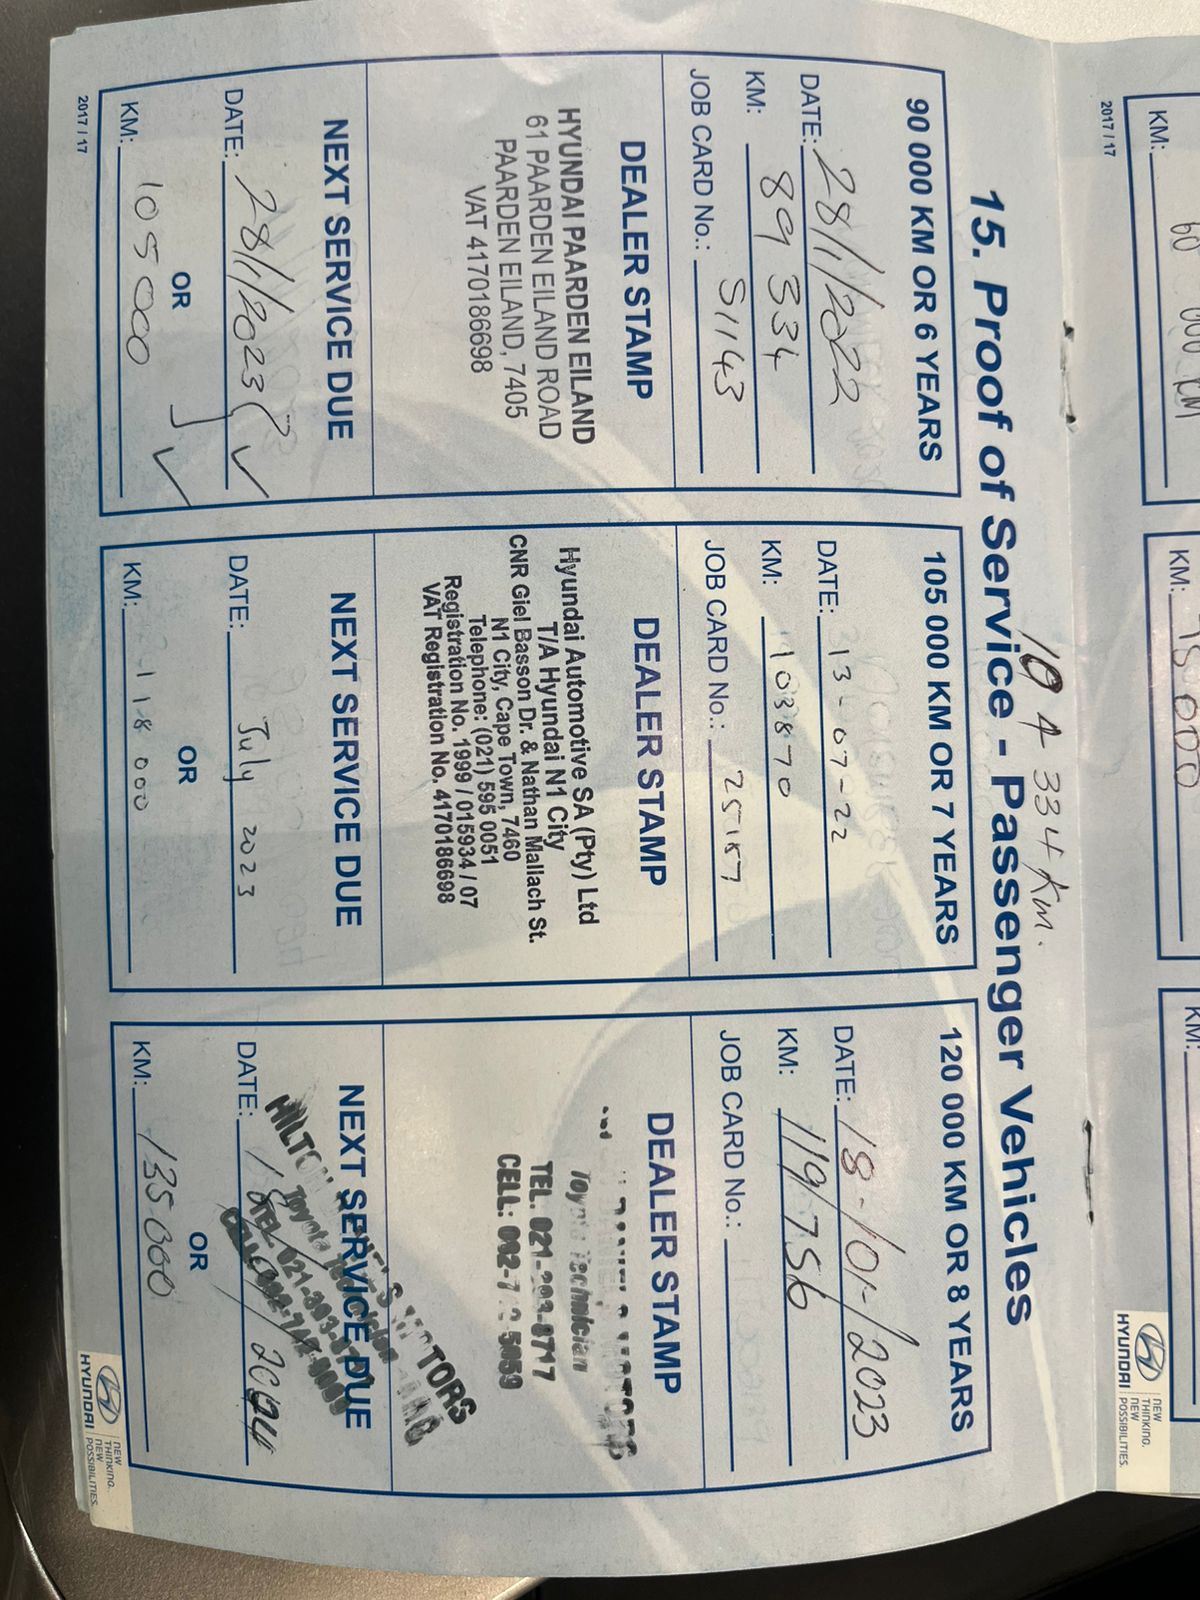 10 4 334 km.
15. Proof of Service - Passenger Vehicles
90 000 KM OR 6 YEARS
DATE: 28/1/2022
KM: 89 334
JOB CARD No.: S1143
DEALER STAMP
HYUNDAI PAARDEN EILAND
61 PAARDEN EILAND ROAD
PAARDEN EILAND, 7405
VAT 4170186698
NEXT SERVICE DUE
DATE: 28/1/2023
OR
KM: 105 000
2017 / 17
105 000 KM OR 7 YEARS
DATE: 13-07-22
KM: 103870
JOB CARD No.: 25187
DEALER STAMP
Hyundai Automotive SA (Pty) Ltd
T/A Hyundai N1 City
CNR Giel Basson Dr. & Nathan Mallach St.
N1 City, Cape Town, 7460
Telephone: (021) 595 0051
Registration No. 1999 / 015934 / 07
VAT Registration No. 4170186698
NEXT SERVICE DUE
DATE: July 2023
OR
KM: 118 000
120 000 KM OR 8 YEARS
DATE: 18-/10-/2023
KM: 119/756
JOB CARD No.:
DEALER STAMP
MOTORS
Toyota Technician
TEL. 021-393-8717
CELL:
NEXT SERVICE DUE
MOTORS
Toyota
DATE:
OR
KM: 135 000
HYUNDAI
NEW
THINKING.
NEW
POSSIBILITIES.
KM: 60 000 KM
2017 / 17
KM: 75 000
KM:
HYUNDAI
NEW
THINKING.
NEW
POSSIBILITIES.